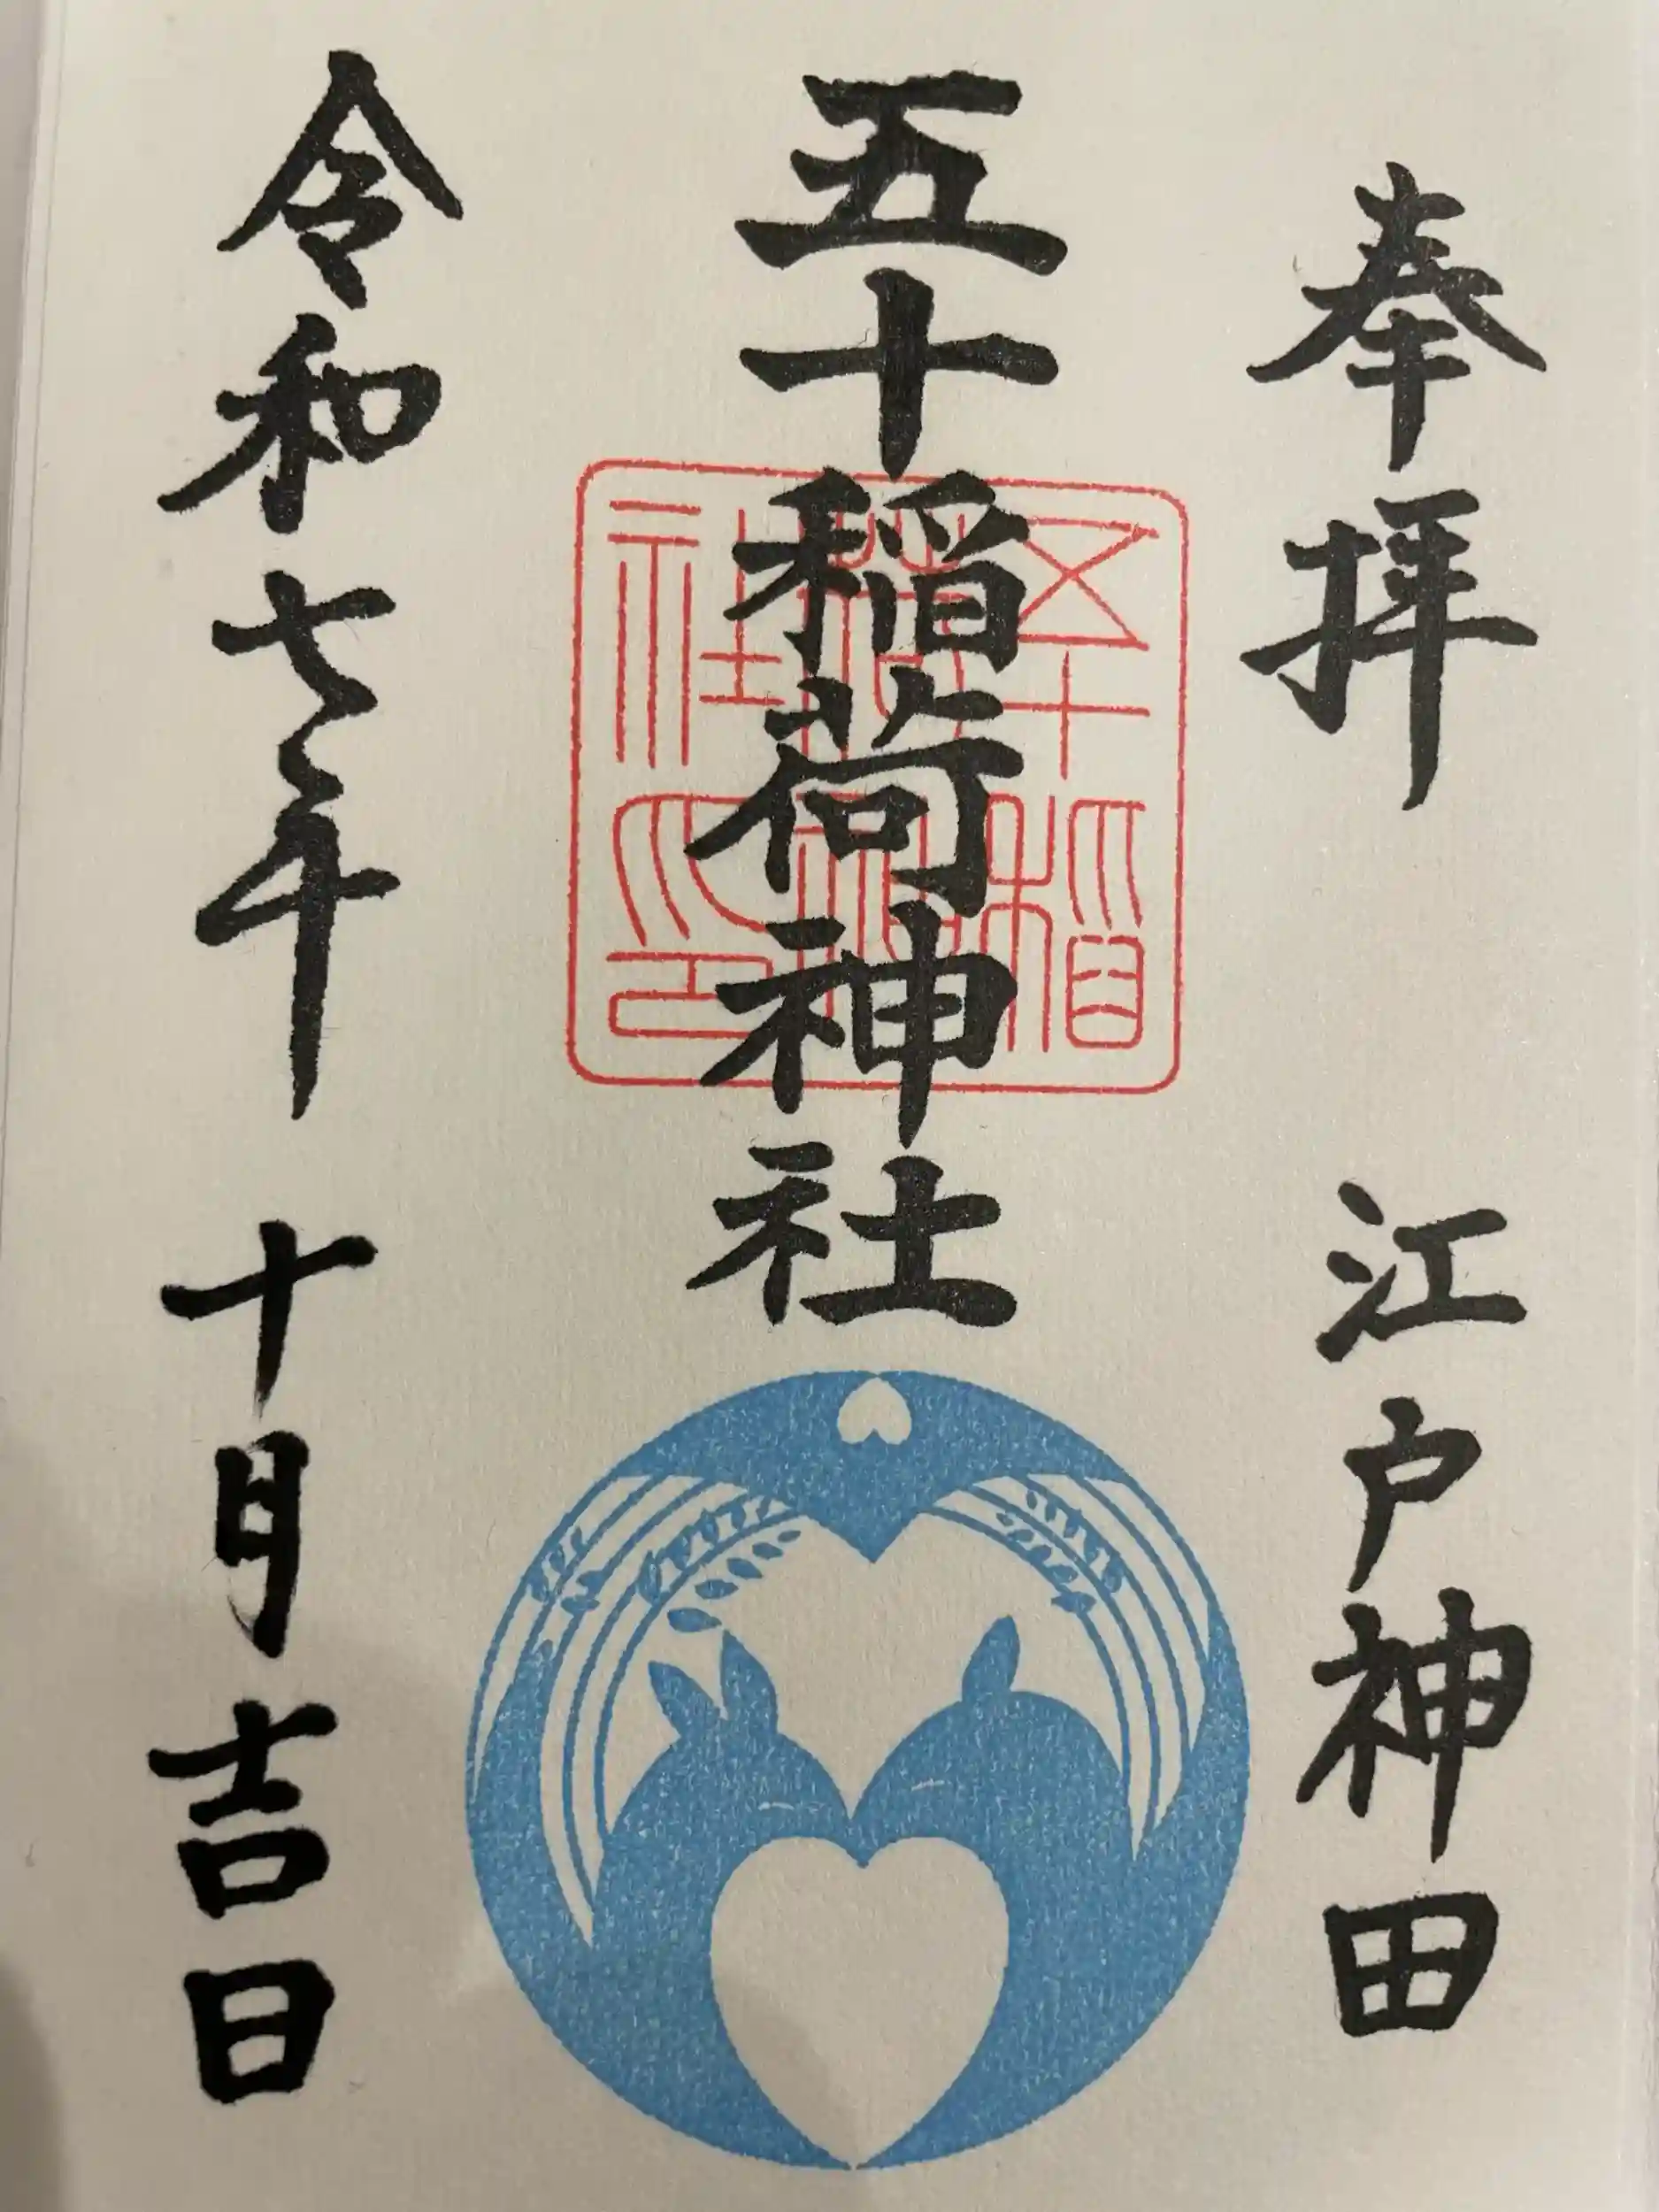 奉拝　江戸神田
五十稲荷神社
五十稲荷神社之印
令和七年　十月吉日